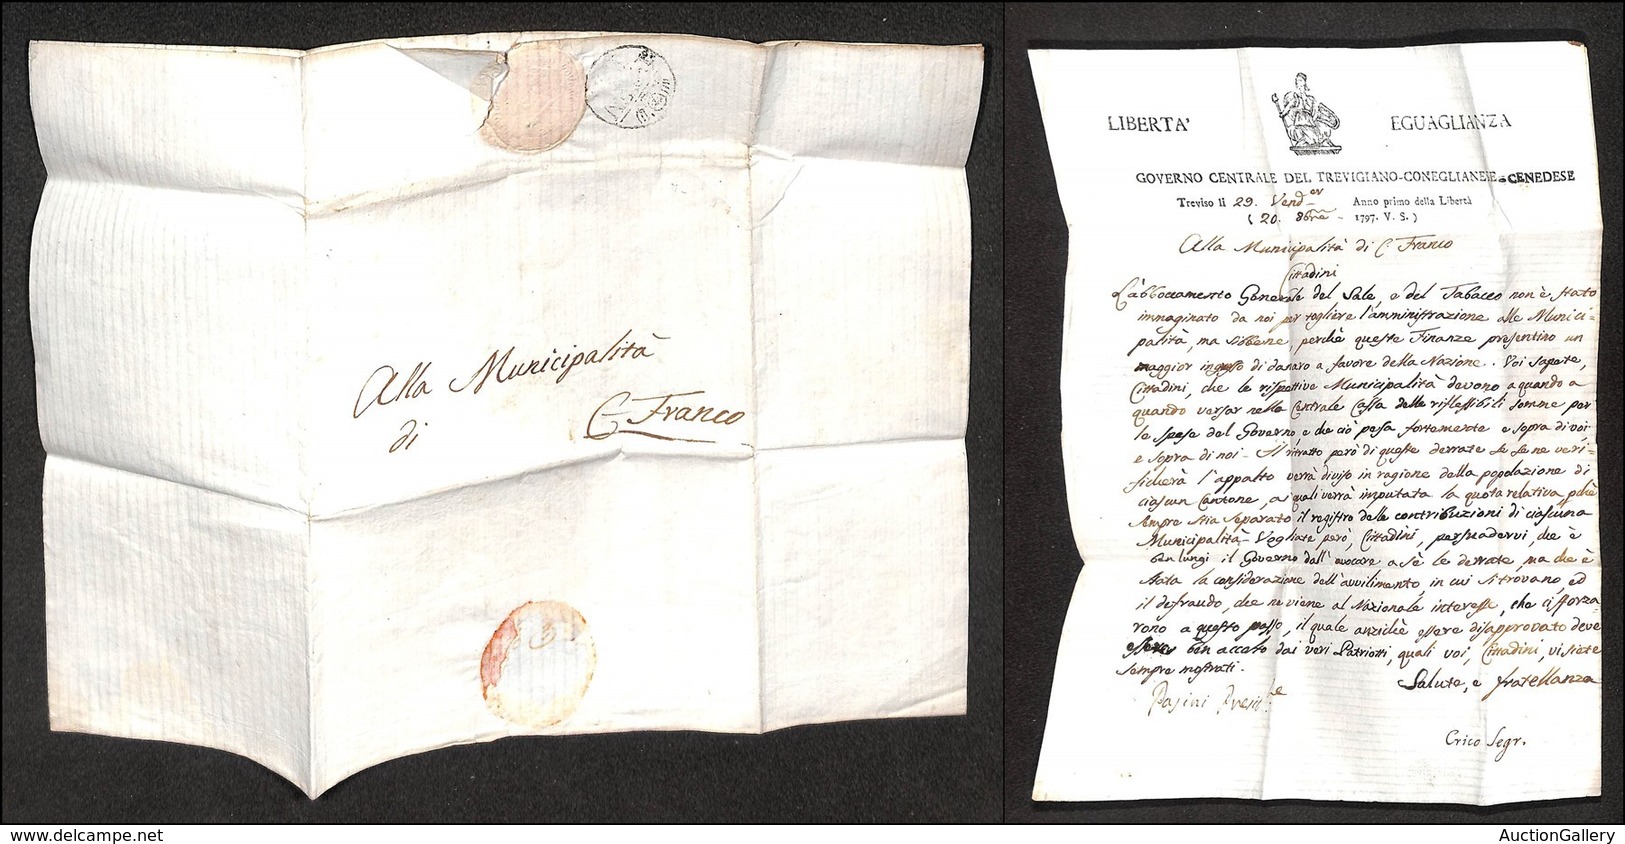 Alla Municipalità
di
C. Franco
LIBERTA' EGUAGLIANZA
GOVERNO CENTRALE DEL TREVIGIANO-CONEGLIANESE-CENEDESE
Treviso li 29. Vend.er Anno primo della Libertà
( 20. 8bre 1797. V. S. )
Alla Municipalità di C. Franco
Cittadini
L'abboccamento Generale del Sale, e del Tabacco non è stato
immaginato da noi per togliere l'amministrazione alle Munici=
palità, ma bensì perchè queste Finanze presentino un
maggior ingresso di danaro a favore della Nazione. Voi sapete,
Cittadini, che le rispettive Municipalità devono a quando a
quando versar nella Centrale Cassa delle riflessibili somme per
le spese del Governo, e che ciò pesa fortemente e sopra di voi,
e sopra di noi. Il ritratto però di queste derrate se se ne veri=
ficherà l'appalto verrà diviso in ragione della popolazione di
ciascun Cantone, a quali verrà imputata la quota relativa, pchè
sempre stia separato il registro delle contribuzioni di ciascuna
Municipalità. Vogliate però, Cittadini, persuadervi, che è
ben lungi il Governo dall'avocare a sè le derrate, ma che è
stata la considerazione dell'avvilimento, in cui si trovano, ed
il defraudo, che ne viene al Nazionale interesse, che ci sforza=
rono a questo passo, il quale anzichè essere disapprovato deve
essere ben accetto dai veri Patriotti, quali voi, Cittadini, vi siete
sempre mostrati.
Salute, e fratellanza
Pasini Presid.e
Crico Segr.
picclick-de.com
AuctionGallery